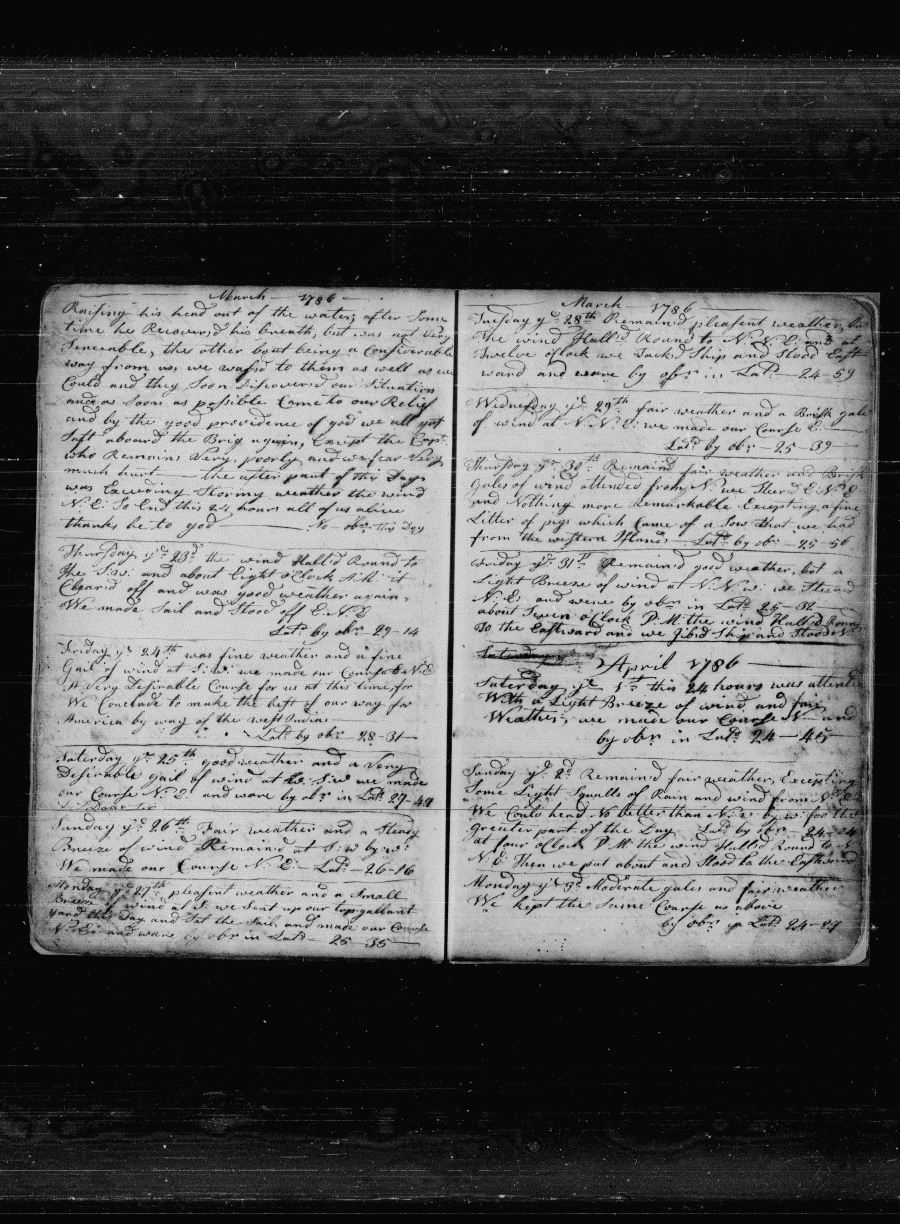 March — 1786 —
Raising his head out of the water, after Some
time he Recovered his breath, but was not Very
Senceable, the other boat being a Considerable
way from us, we wafed to them as well as we
Could and they Soon Discovered our Situation
and as Soon as possible Came to our Relief
and by the good providence of god we all got
Saft aboard the Brig again, Except the Capt
who Remains Very poorly and we fear Very
much hurt — the after part of this Day
was Exceding Stormy weather the wind
N. E. So End this 24 hours all of us alive
thanks be to god — No obr this Day
Thursday ye 23d the wind Hall'd Round to
the S:W: and about Eight o'Clock A:M: it
Clear'd off and was good weather again,
We made Sail and Stood off E.N.E
Latd by obr 29-14
Friday ye 24th was fine weather and a fine
Gail of wind at S:W: we made our Course E N:E
A Very Desirable Course for us at this time, for
We Conclude to make the best of our way for
America by way of the west Indias
Latd by obr 28-31
Saturday ye 25th good weather and a Very
Desirable gail of wind at W. S:W we made
our Course N.E: and ware by obr in Latd 27-48
Sunday ye 26th Fair weather and a Steady
Breeze of wind Remaind at S:W by W:
We made our Course N.E: Latd — 26-16
Monday ye 27th pleasent weather and a Small
Breeze of wind at S: we Sent up our topgallant
yard this Day and Set the Sail, and made our Course
N:E: and ware by obr in Latd — 25-35
March — 1786
Tuesday ye 28th Remain'd pleasent weather,
the wind Hall'd Round to N. N E: and at
Twelve o'Clock we Tack'd Ship and Stood East
ward and ware by obr in Latd — 24-59
Wednesday ye 29th fair weather and a Brisk gale
of wind at N. N. E: we made our Course E:
Latd by obr 25-39
Thursday ye 30th Remain'd fair weather and Brisk
Gales of wind attended from N. we Sterd E. N. E
and Nothing more Remarkable Excepting a fine
Litter of pigs which Came of a Sow that we had
from the western Islands Latd by obr 25-56
Friday ye 31st Remain'd good weather, but a
Light Breeze of wind at N. N. W: we Steerd
N. E: and were by obr in Latd 25-32
about Seven o'Clock P.M. the wind Hall'd Round
to the Eastward and we Jibd Ship and Stood N
Saturday
April 1786
Saturday ye 1st this 24 hours was attend
With a Light Breeze of wind and fair
Weather, we made our Course N and
by obr in Latd 24-45
Sunday ye 2d Remain'd fair weather, Excepting
Some Light Squalls of Rain and wind from N:
We Could head No better than N: W by W: for the
Greeter part of the Day Latd by obr 24-24
at four o'Clock P.M. the wind Hall'd Round to N
N. E Then we put about and Stood to the Eastward
Monday ye 3d Moderate gales and fair weather
We kept the Same Course as above
by obr in Latd 24-27